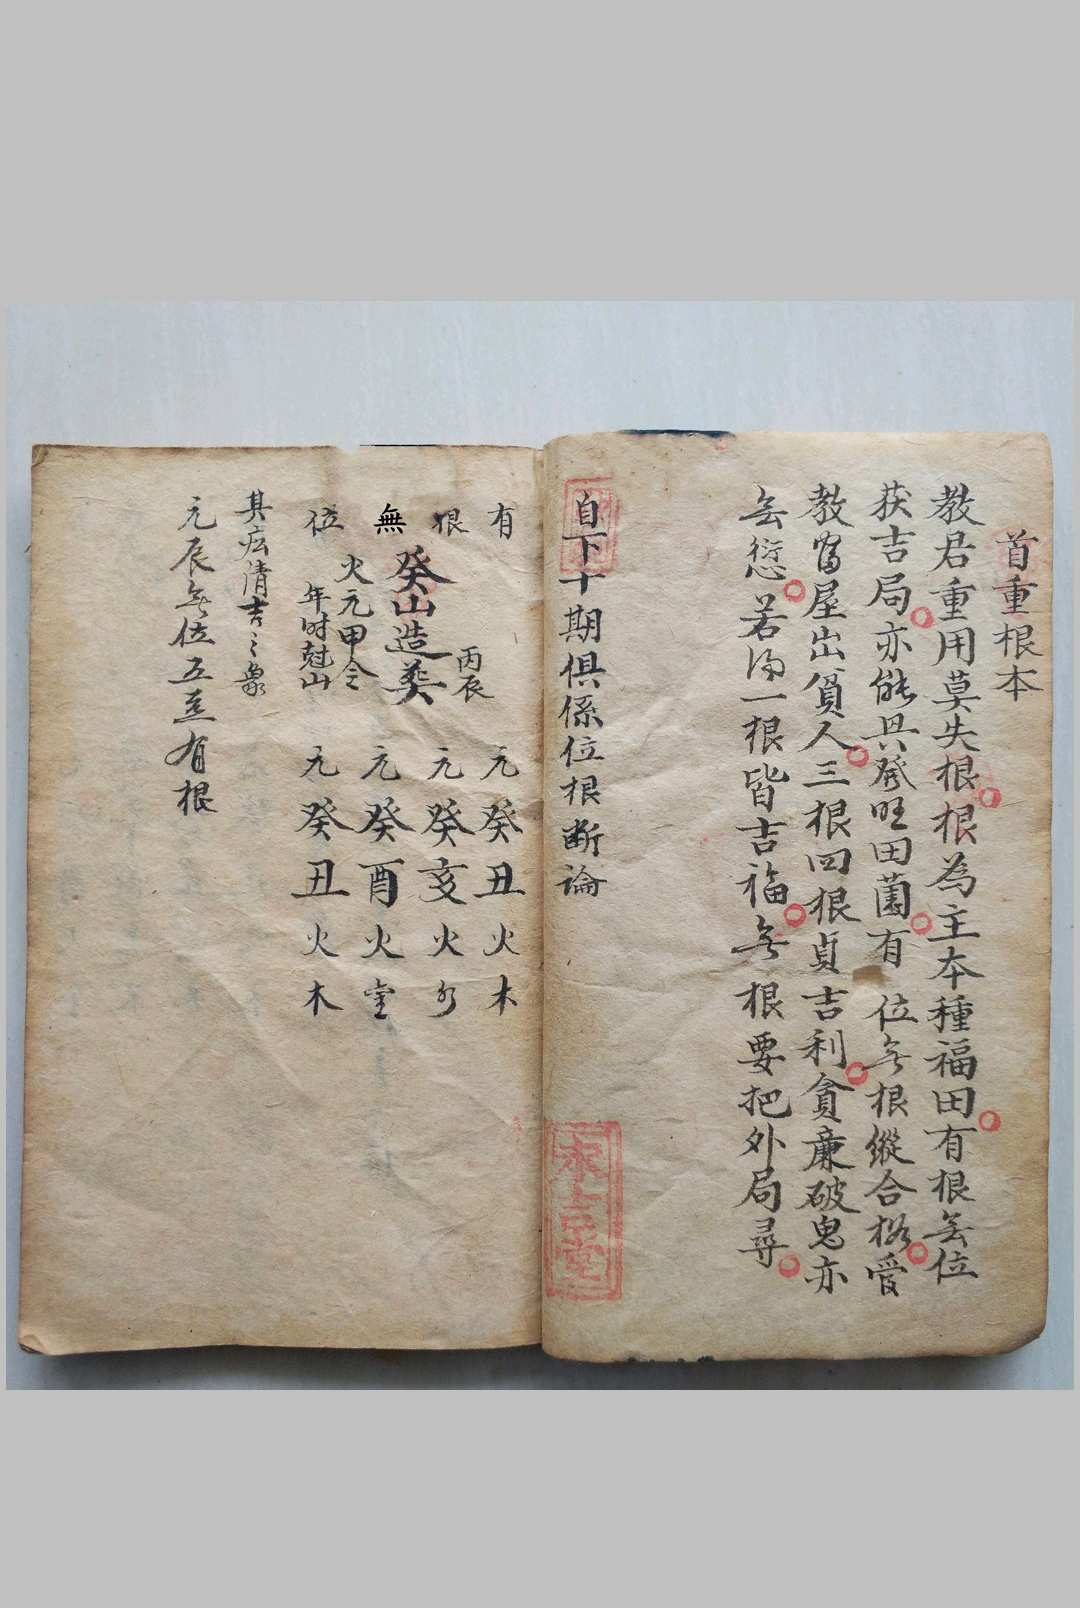 首重根本
教君重用莫失根根為主本種福田有根無位
获吉局亦能具發旺田園有 位無根縱合格管
教富屋出貧人三根四根貞吉利貪廉破鬼亦
無愆若得一根皆吉福無根要把外局尋
自下十期俱係位根断論
有 根 無 位
丙辰
癸山造葬
火元甲令
年时尅山
元癸丑火木
元癸亥火水
元癸酉火金
元癸丑火木
其 清吉之象
元辰無位五 有根
吉堂